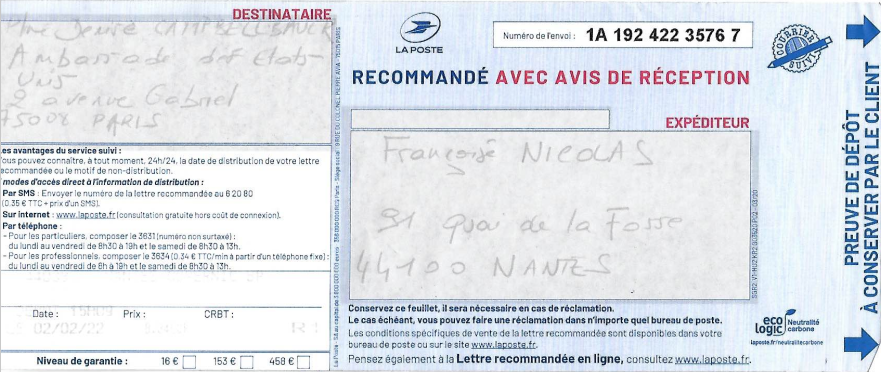 DESTINATAIRE
Mme Denise CAMPBELL BAUER
Ambassade des États-
Unis
2 avenue Gabriel
75008 PARIS
Les avantages du service suivi :
Vous pouvez connaître, à tout moment, 24h/24, la date de distribution de votre lettre
recommandée ou le motif de non-distribution.
modes d'accès direct à l'information de distribution :
Par SMS : Envoyer le numéro de la lettre recommandée au 6 20 80
(0.35 € TTC + prix d'un SMS).
Sur internet : www.laposte.fr (consultation gratuite hors coût de connexion).
Par téléphone :
– Pour les particuliers, composer le 3631 (numéro non surtaxé) :
du lundi au vendredi de 8h30 à 19h et le samedi de 8h30 à 13h.
– Pour les professionnels, composer le 3634 (0.34 € TTC/min à partir d'un téléphone fixe) :
du lundi au vendredi de 8h à 19h et le samedi de 8h30 à 13h.
Date : Prix : CRBT :
02/02/22 R1
Niveau de garantie : 16 € 153 € 458 €
LA POSTE
Numéro de l'envoi : 1A 192 422 3576 7
COURRIER SUIVI
RECOMMANDÉ AVEC AVIS DE RÉCEPTION
EXPÉDITEUR
Françoise NICOLAS
91 quai de la Fosse
44100 NANTES
Conservez ce feuillet, il sera nécessaire en cas de réclamation.
Le cas échéant, vous pouvez faire une réclamation dans n'importe quel bureau de poste.
Les conditions spécifiques de vente de la lettre recommandée sont disponibles dans votre
bureau de poste ou sur le site www.laposte.fr.
Pensez également à la Lettre recommandée en ligne, consultez www.laposte.fr.
eco
logic
Neutralité
carbone
laposte.fr/neutralitecarbone
PREUVE DE DÉPÔT
À CONSERVER PAR LE CLIENT